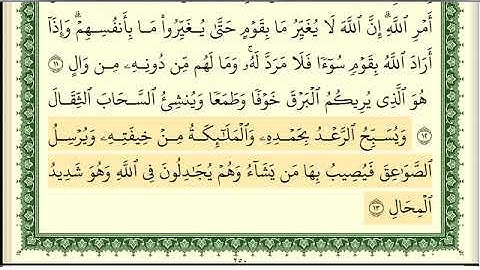 أَمْرِ ٱللَّهِ ۗ إِنَّ ٱللَّهَ لَا يُغَيِّرُ مَا بِقَوْمٍ حَتَّىٰ يُغَيِّرُوا۟ مَا بِأَنفُسِهِمْ ۗ وَإِذَآ
أَرَادَ ٱللَّهُ بِقَوْمٍ سُوٓءًا فَلَا مَرَدَّ لَهُۥ ۚ وَمَا لَهُم مِّن دُونِهِۦ مِن وَالٍ ١١
هُوَ ٱلَّذِى يُرِيكُمُ ٱلْبَرْقَ خَوْفًا وَطَمَعًا وَيُنشِئُ ٱلسَّحَابَ ٱلثِّقَالَ
١٢ وَيُسَبِّحُ ٱلرَّعْدُ بِحَمْدِهِۦ وَٱلْمَلَـٰٓئِكَةُ مِنْ خِيفَتِهِۦ وَيُرْسِلُ
ٱلصَّوَٰعِقَ فَيُصِيبُ بِهَا مَن يَشَآءُ وَهُمْ يُجَـٰدِلُونَ فِى ٱللَّهِ وَهُوَ شَدِيدُ
ٱلْمِحَالِ ١٣
٢٥٠